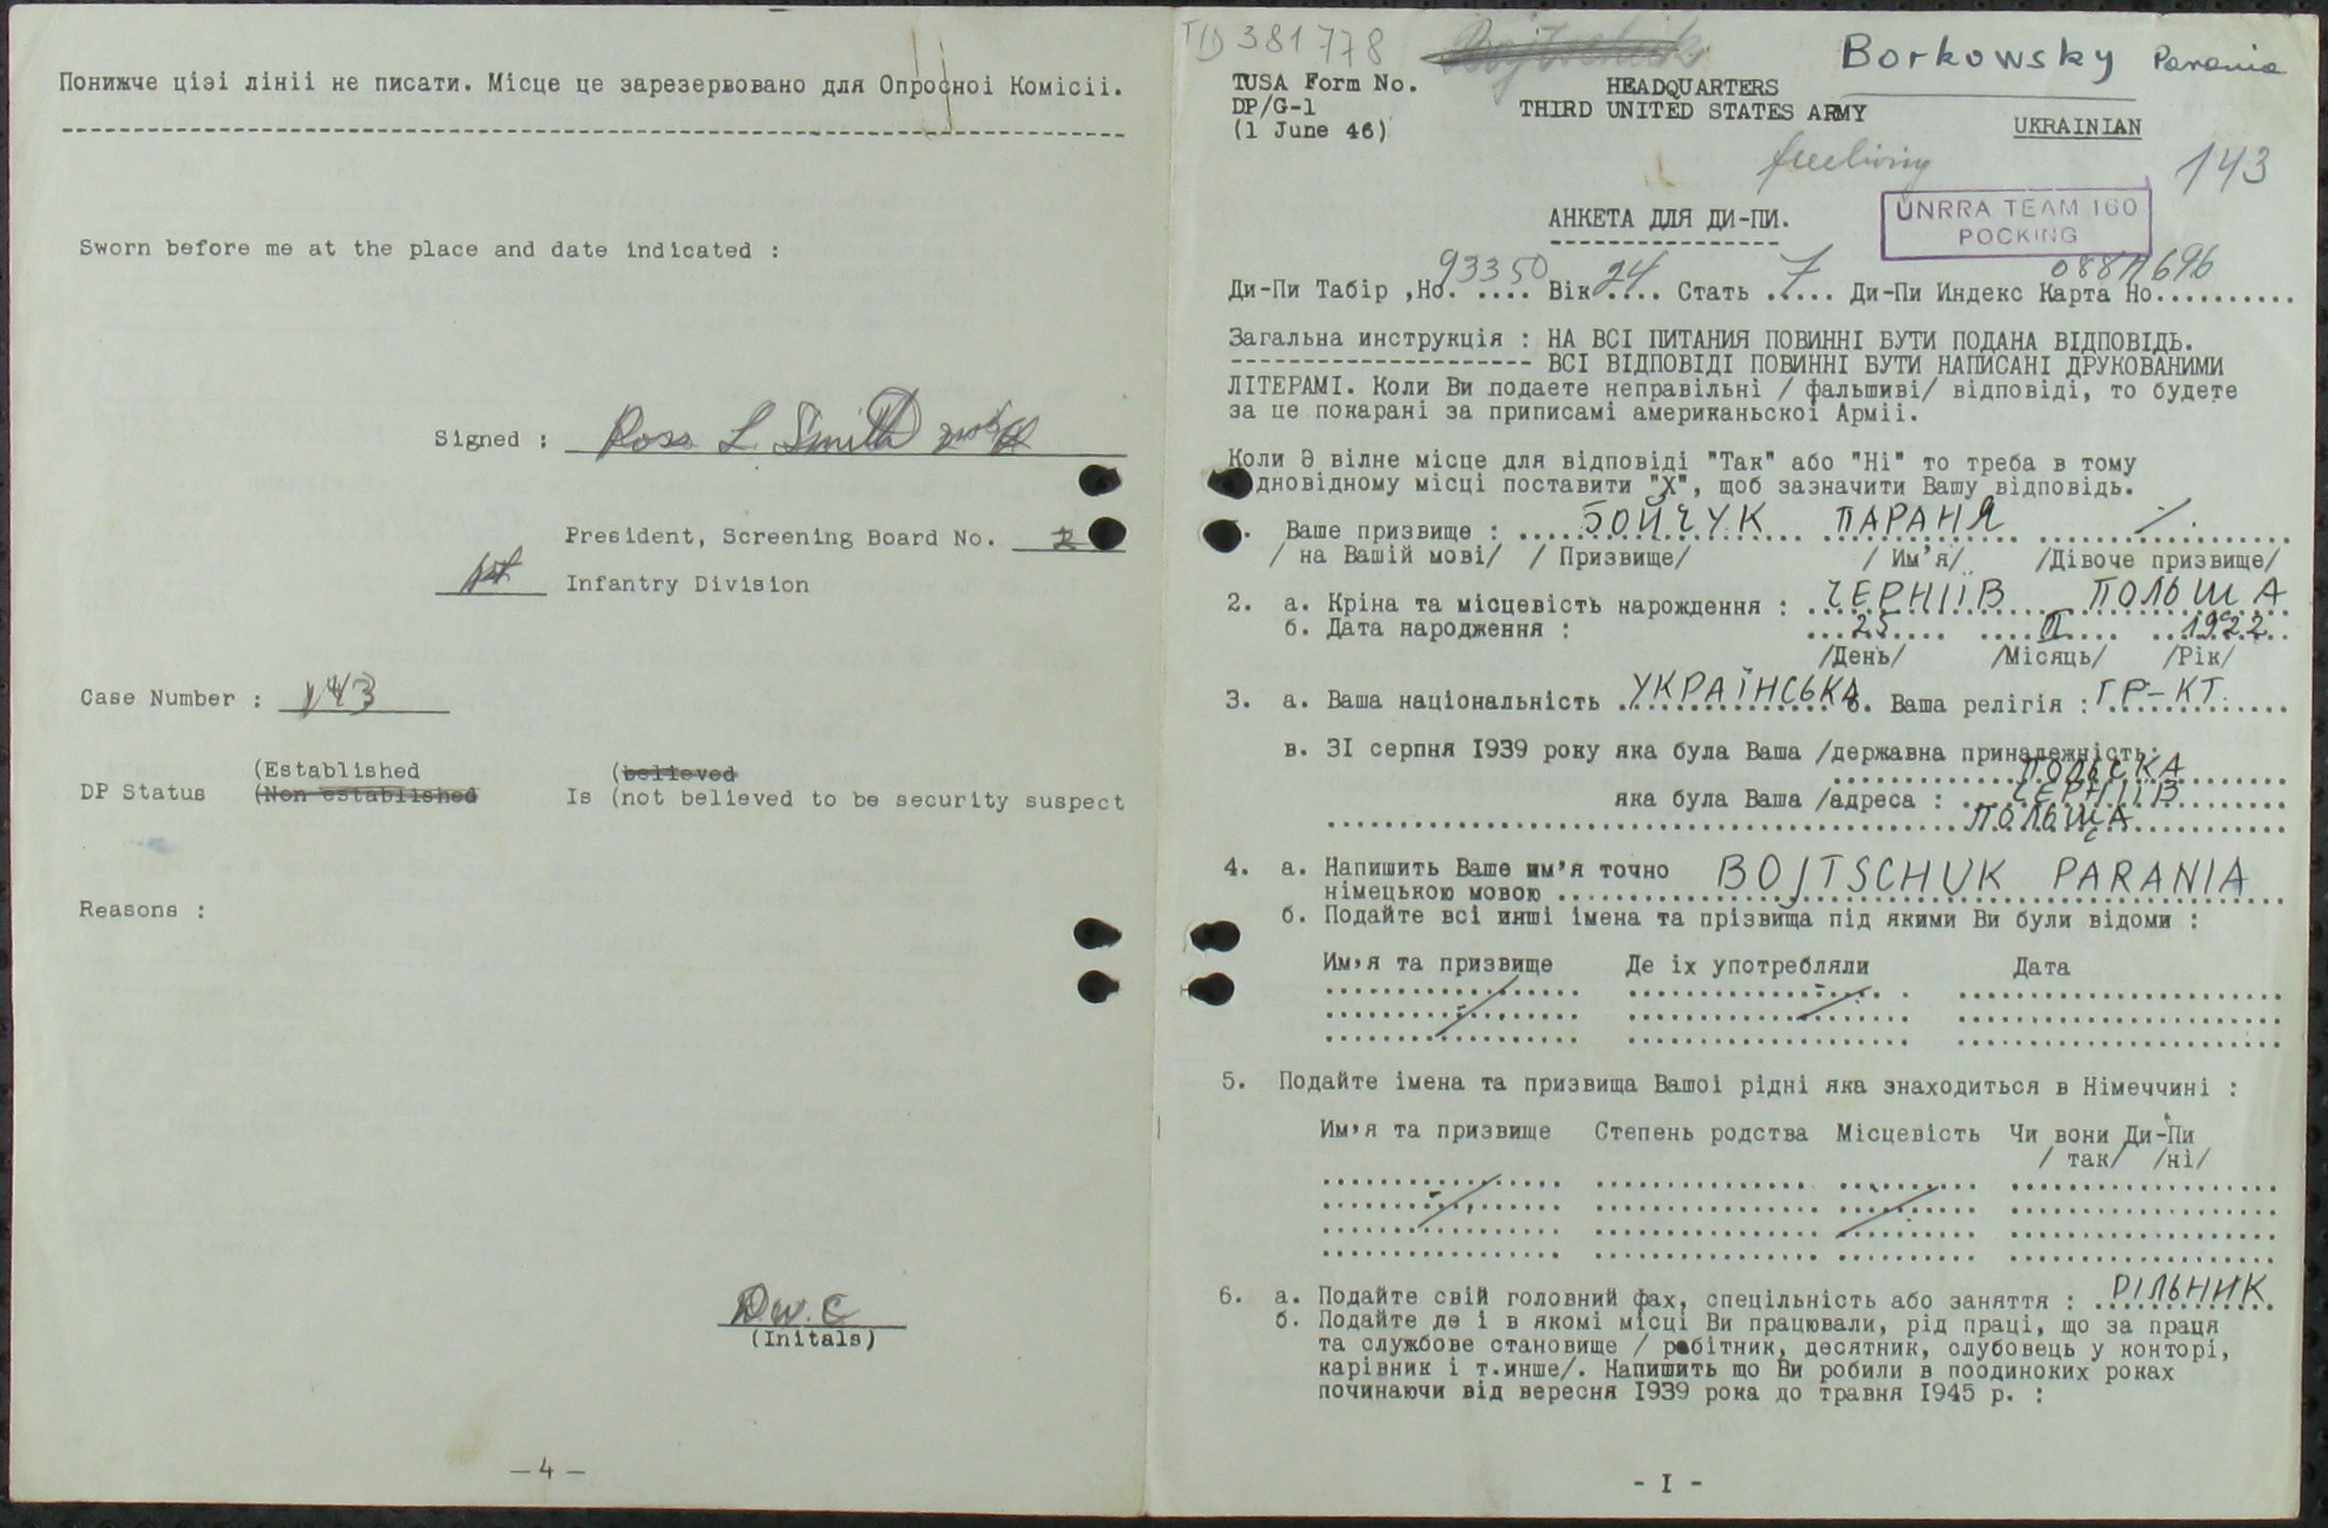 Понижче цізі лініі не писати. Місце це зарезервовано для Опросноі Комісіі.
Sworn before me at the place and date indicated :
Signed : Ross L. Smith
President, Screening Board No. 2
1st Infantry Division
Case Number : 143
(Established (believed
DP Status (Non established Is (not believed to be security suspect
Reasons :
D.W.C
(Initals)
— 4 —
TID 381778
Borkowsky Parania
TUSA Form No. HEADQUARTERS
DP/G-1 THIRD UNITED STATES ARMY
(1 June 46) UKRAINIAN
freeliving 143
АНКЕТА ДЛЯ ДИ-ПИ.
UNRRA TEAM 160
POCKING
Ди-Пи Табір ,Но. 93350 Вік 24 Стать .... Ди-Пи Индекс Карта Но..........
Загальна инструкція : НА ВСІ ПИТАНИЯ ПОВИННІ БУТИ ПОДАНА ВІДПОВІДЬ.
ВСІ ВІДПОВІДІ ПОВИННІ БУТИ НАПИСАНІ ДРУКОВАНИМИ
ЛІТЕРАМІ. Коли Ви подаете неправільні / фальшиві/ відповіді, то будете
за це покарані за приписамі американьскоі Арміі.
Коли Э вілне місце для відповіді "Так" або "Ні" то треба в тому
дновідному місці поставити "Х", щоб зазначити Вашу відповідь.
. Ваше призвище : БОЙЧУК ПАРАНЯ /.
/ на Вашій мові/ / Призвище/ / Им'я/ /Дівоче призвище/
2. а. Кріна та місцевість нарождення : ЧЕРНІЇВ ПОЛЬЩА
б. Дата народження : 25 II 1922
/День/ /Місяць/ /Рік/
3. а. Ваша національність УКРАЇНСЬКА б. Ваша релігія : ГР-КТ.
в. ЗІ серпня І939 року яка була Ваша /державна приналежність:
ПОЛЬСКА
яка була Ваша /адреса : ЧЕРНІЇВ
ПОЛЬЩА
4. а. Напишить Ваше им'я точно
німецькою мовою BOJTSCHUK PARANIA
б. Подайте всі инші імена та прізвища під якими Ви були відоми :
Им,я та призвище Де іх употребляли Дата
5. Подайте імена та призвища Вашоі рідні яка знаходиться в Німеччині :
Им,я та призвище Степень родства Місцевість Чи вони Ди-Пи
/ так/ /ні/
6. а. Подайте свій головний фах, спецільність або заняття : РІЛЬНИК
б. Подайте де і в якомі місці Ви працювали, рід праці, що за праця
та службове становище / робітник, десятник, слубовець у конторі,
карівник і т.инше/. Напишить що Ви робили в поодиноких роках
починаючи від вересня І939 рока до травня І945 р. :
- I -